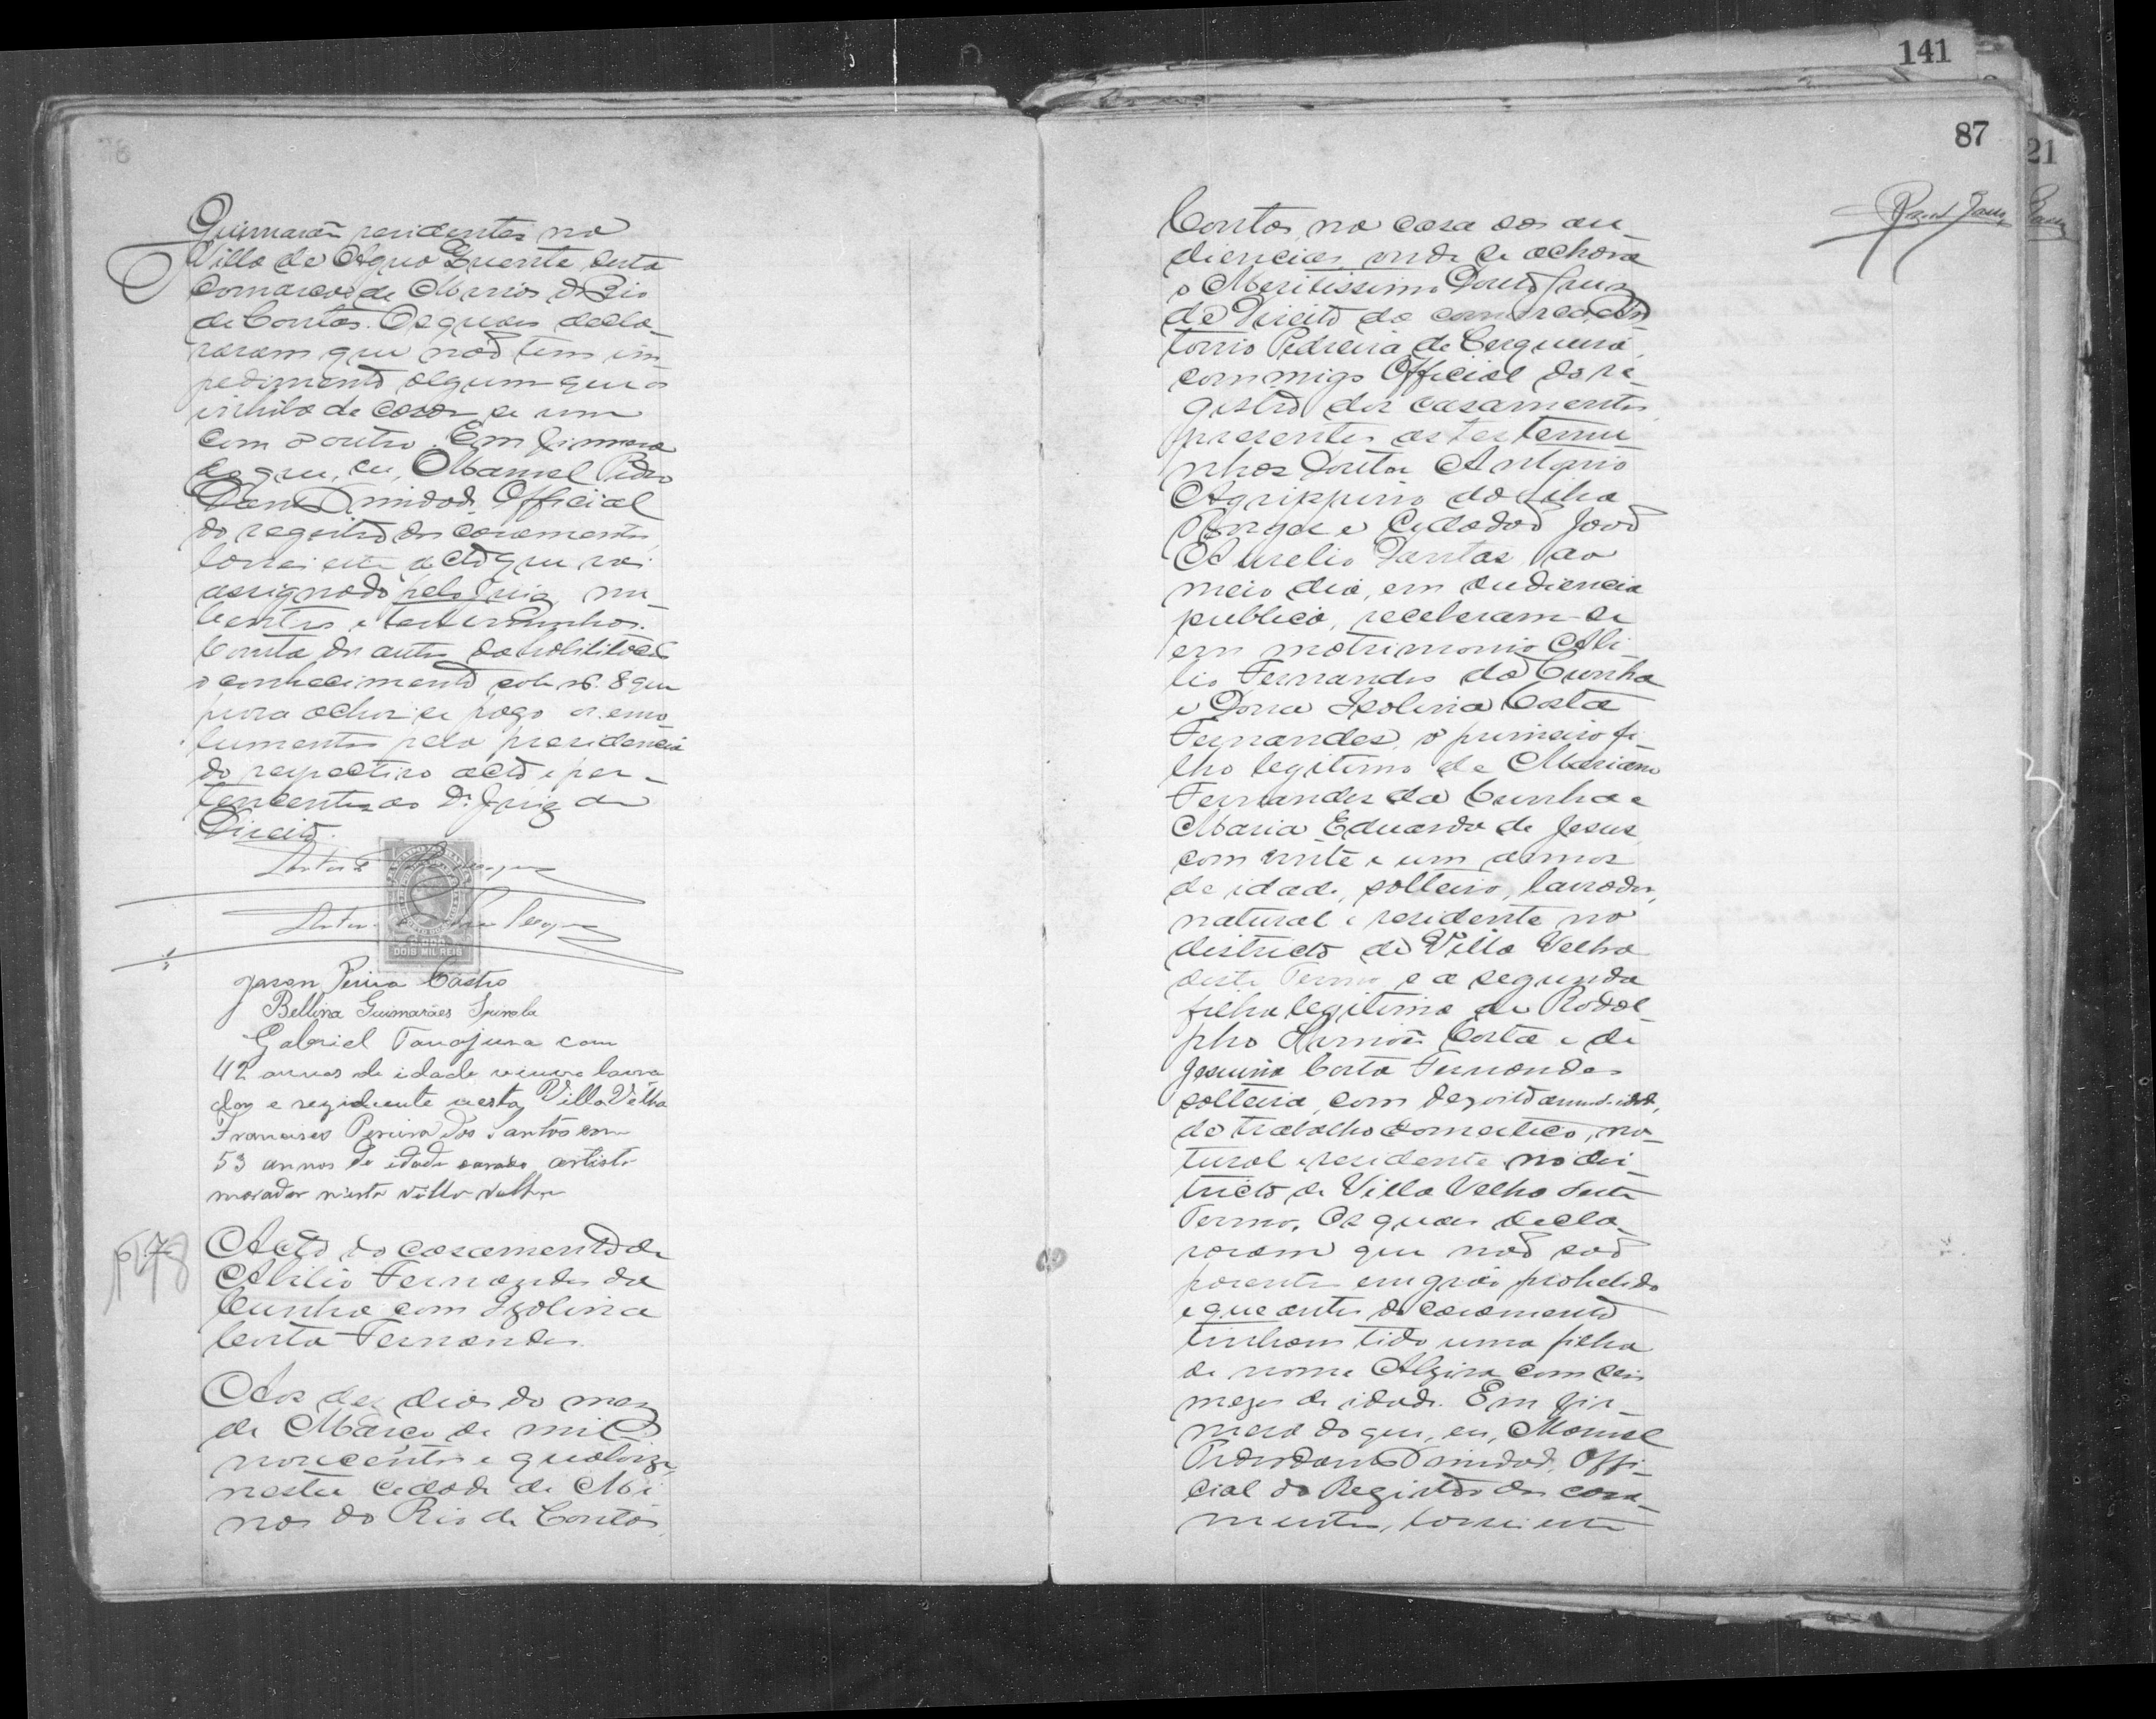 141
87
21
Guimarãis residentes na
Villa de Agua Quente desta
Comarca de Minas do Rio
de Contas. Os quaes decla-
raram que não tem im-
pedimento algum que os
inhiba de casar se um
com o outro. Em firmesa
do que, eu, Manoel Pedro
Dantas Trindade, Official
do registro dos casamentos,
lavrei este acto que vai
assignado pelo Juiz, nu-
bentes e testemunhas.
Consta dos autos da habilitação
o conhecimento sob nº. 8 que
prova achar-se pago os emo-
lumentos pela presidencia
do respectivo acto e per-
tencentes ao Dr. Juiz de
Direito.
DOIS MIL REIS
Jason Pereira Castro
Bellina Guimarães Spinola
Gabriel Tanajura com
42 annos de idade viuvo lavra
dor e rezidente nesta Villa Velha
Francisco Pereira dos Santos com
53 annos de idade casado artista
morador nesta villa velha
Acto do casamento de
Abilio Fernandes da
Cunha com Izolina
Costa Fernandes.
Aos dez dias do mez
de Março de mil
novecentos e quatorze,
nesta cidade de Mi
nas do Rio de Contas,
Contas, na casa das au-
diencias, onde se achava
o Meritissimo Doutor Juiz
de Direito da comarca, An
tonio Pedreira de Cerqueira,
commigo Official do re-
gistro dos casamentos,
presentes as testemu
nhas Doutor Antonio
Agrippino da Silva
Borges e Cidadão João
Aurelio Dantas, ao
meio dia, em audiencia
publica, receberam-se
em matrimonio Abi-
lio Fernandes da Cunha
e Dona Isolina Costa
Fernandes, o primeiro fi-
lho legitimo de Mariano
Fernandes da Cunha e
Maria Eduarda de Jesus,
com vinte e um annos
de idade, solteiro, lavrador,
natural e residente no
districto de Villa Velha
deste Termo, e a segunda
filha legitima de Rodol-
pho Costa e de
Jesuina Costa Fernandes
solteira, com dezoito annos de idade,
do trabalho domestico, na-
tural e residente no dis-
tricto de Villa Velha deste
Termo. Os quaes decla-
raram que não são
parentes em gráo prohibido
e que antes do casamento
tinham tido uma filha
de nome Alzira com seis
mezes de idade. Em fir-
mesa do que, eu, Manoel
Pedro Dantas Trindade, Offi-
cial do Registro dos casa-
mentos, lavrei este